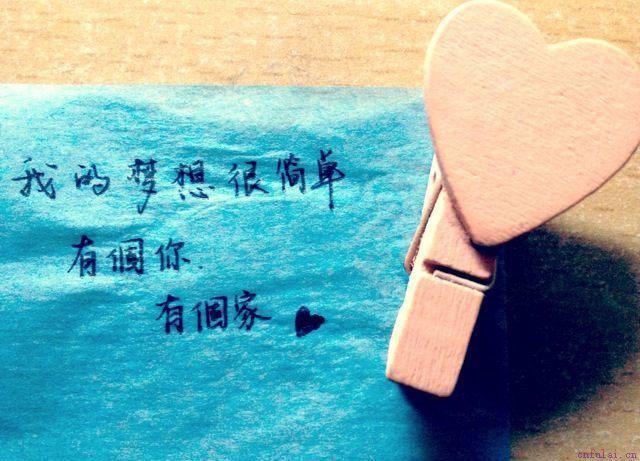 我的梦想很简单
有個你.
有個家
cnfulai.cn